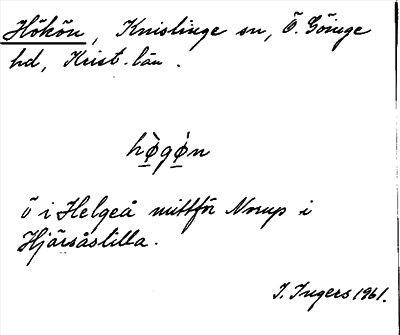 Hökön, Knislinge sn, Ö. Göinge
hd, Krist. län.
hø̀gø̀n
ö i Helgeå mittför Norup i
Hjärsåslilla.
I. Ingers 1961.